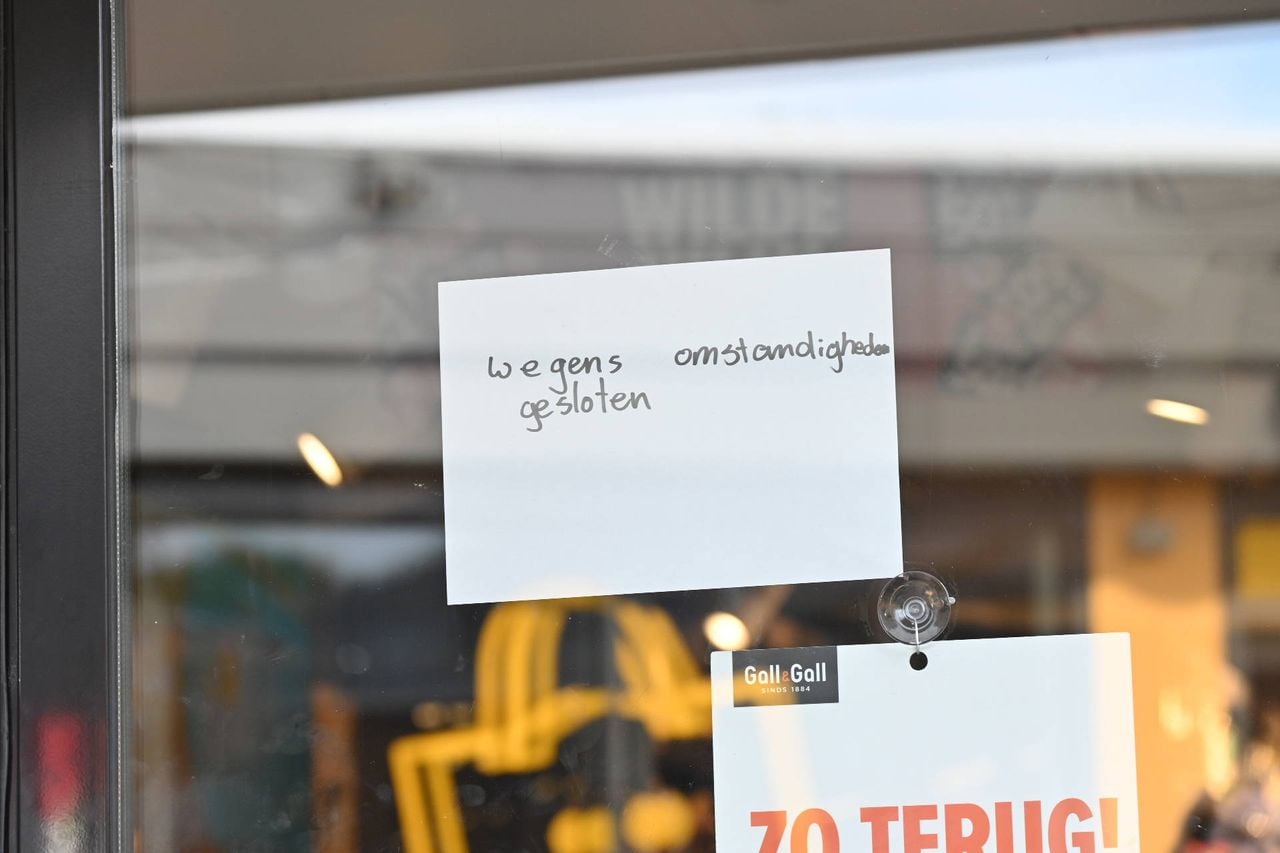 WILDE
wegens omstandigheden
gesloten
Gall&Gall
SINDS 1884
ZO TERUG!